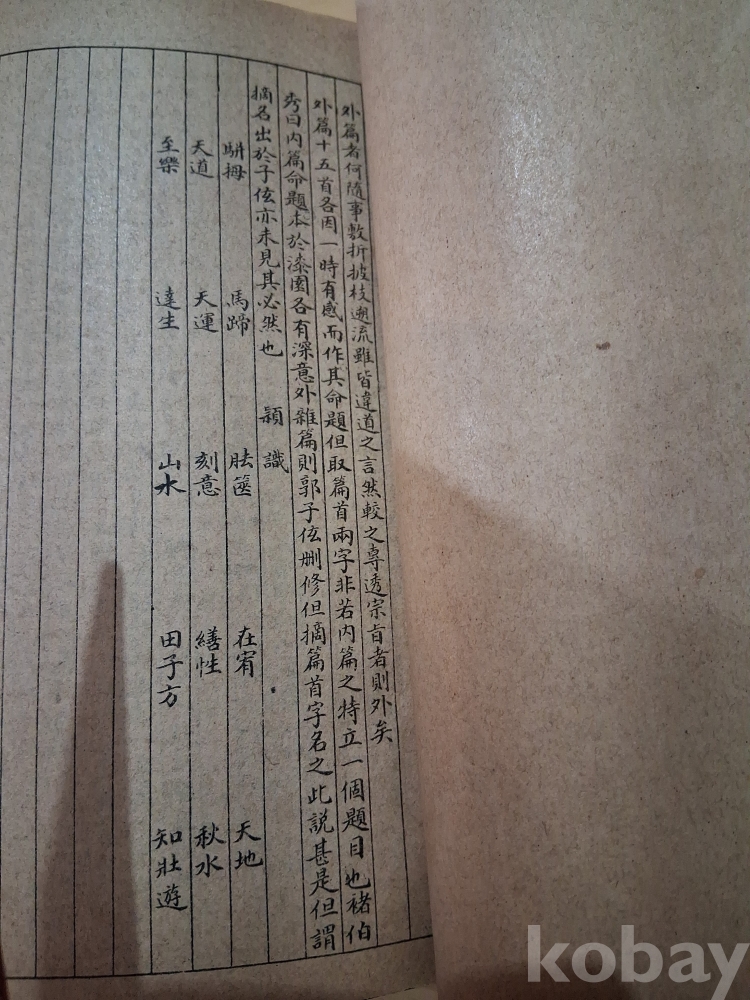 外篇者何隨事敷折披枝遡流雖皆違道之言然較之專透宗旨者則外矣
外篇十五首各因一時有感而作其命題但取篇首兩字非若內篇之特立一個題目也褚伯
秀曰內篇命題本於漆園各有深意外雜篇則郭子伭刪修但摘篇首字名之此說甚是但謂
摘名出於子伭亦未見其必然也 穎識
駢拇 馬蹄 胠篋 在宥 天地
天道 天運 刻意 繕性 秋水
至樂 達生 山水 田子方 知壯遊
kobay